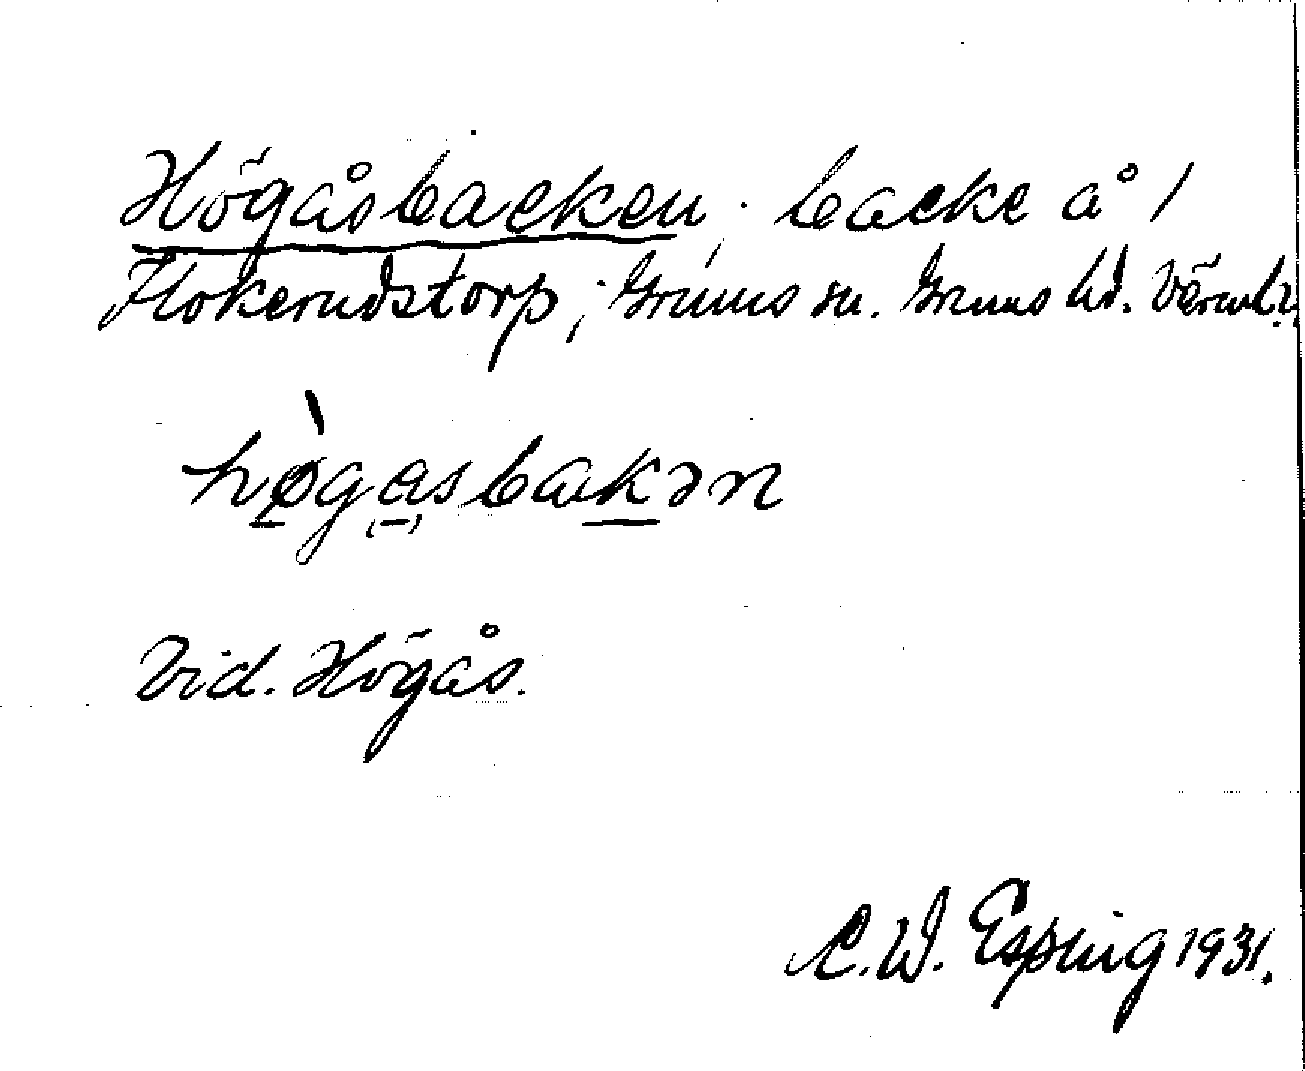 Högåsbacken, backe å 1
Flokerudstorp, Grums sn. Grums hd. Värml.
hø̀gasbakən
Vid. Högås.
C. W. Esping 1931.